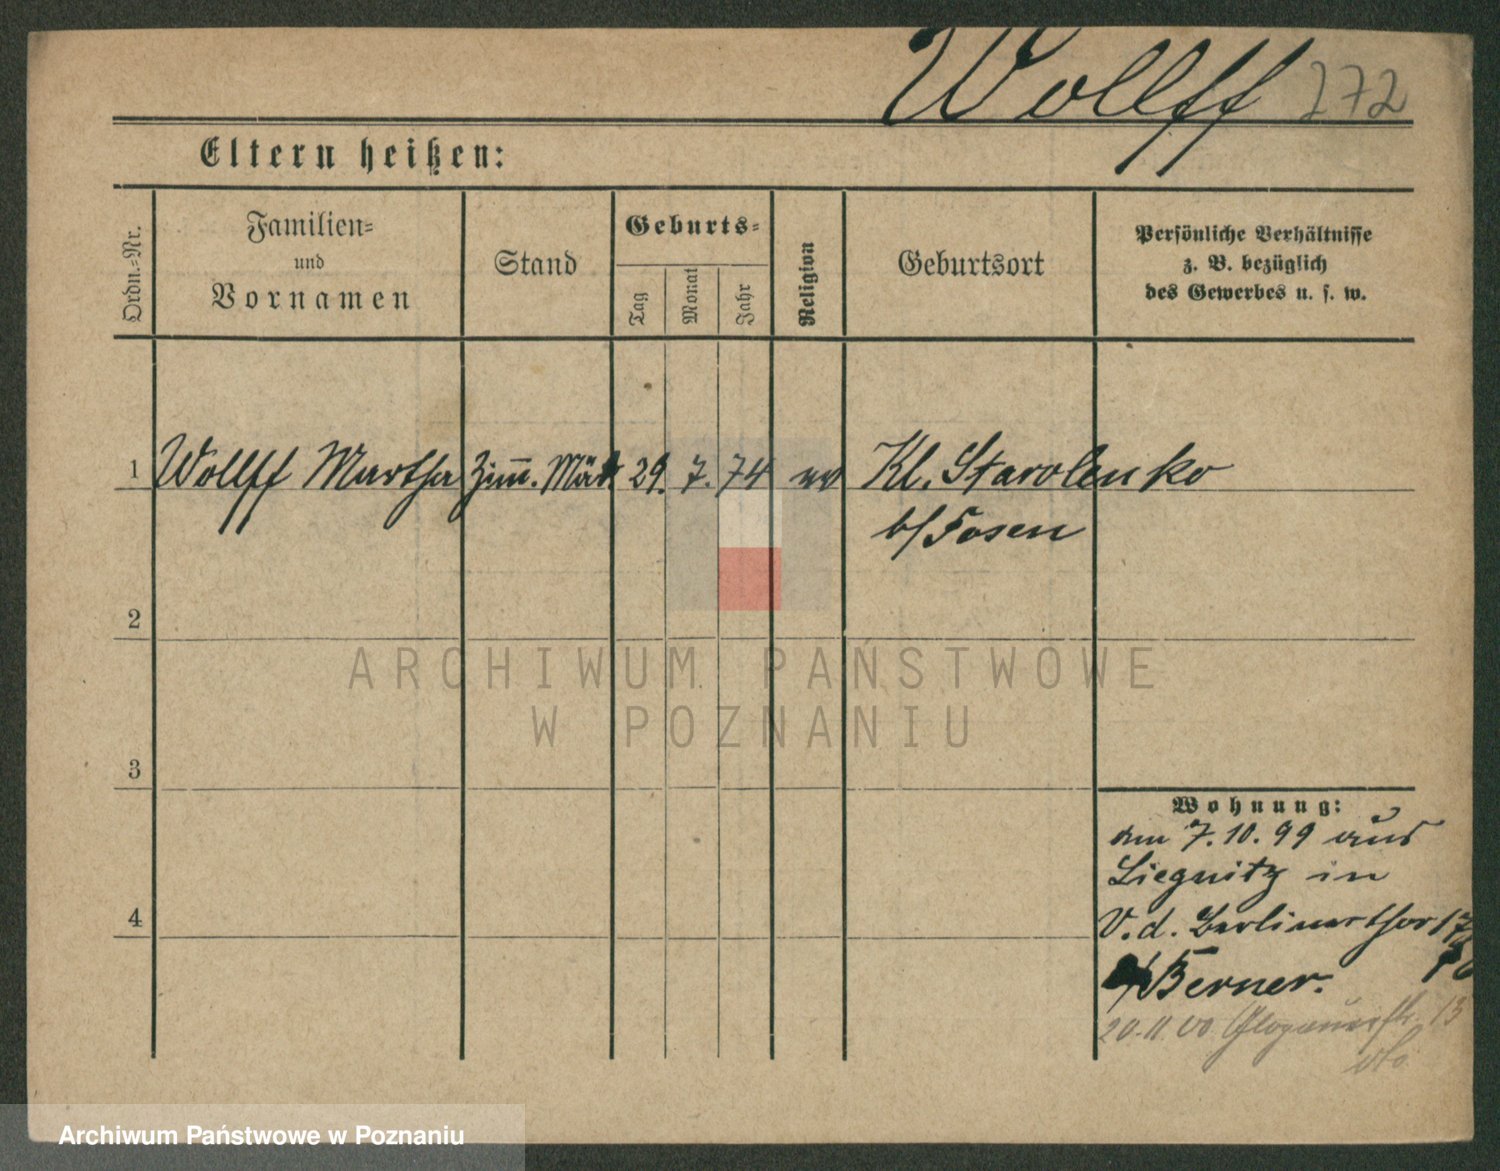 Wollff 272
Eltern heißen:
Ordn.-Nr.
Familien-
und
Vornamen
Stand
Geburts-
Tag
Monat
Jahr
Religion
Geburtsort
Persönliche Verhältnisse
z. B. bezüglich
des Gewerbes u. s. w.
1 Wollff Martha Zim̅. Mäd. 29. 7. 74 ev Kl. Starolenko
b/Posen
2
3
4
Wohnung:
am 7.10.99 aus
Liegnitz in
V. d. Berlinerthor 17
b/Berner.
20.11.00 Glogauerstr. 13
ARCHIWUM PAŃSTWOWE
W POZNANIU
Archiwum Państwowe w Poznaniu